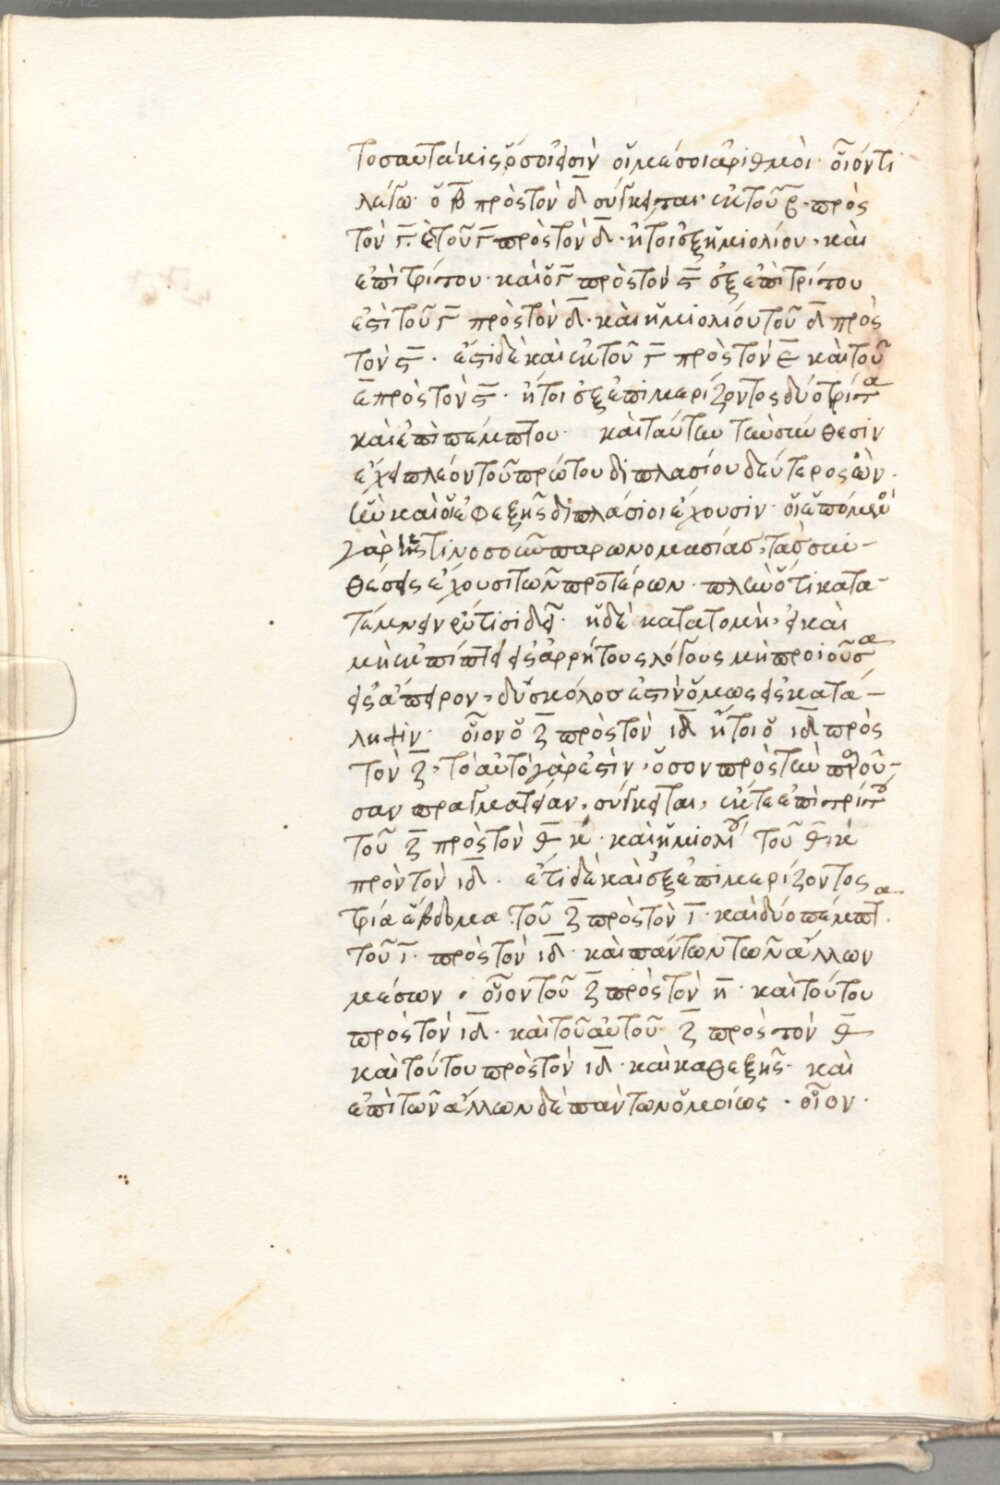 τοσαυτάκις ὅσοι εἰσὶν οἱ μέσοι ἀριθμοὶ· οἷόν τι
λέγω· ὁ β̅ πρὸς τὸν δ̅ σύγκειται· ἐκ τοῦ β̅· πρὸς
τὸν γ̅· ἐκ τοῦ γ̅ πρὸς τὸν δ̅· ἤτοι ἐξ ἡμιολίου· καὶ
ἐπιτρίτου· καὶ ὁ γ̅ πρὸς τὸν ϛ̅ ἐξ ἐπιτρίτου
ἐστὶ τοῦ γ̅ πρὸς τὸν δ̅· καὶ ἡμιολίου τοῦ δ̅ πρὸς
τὸν ϛ̅· ἔστι δὲ καὶ ἐκ τοῦ γ̅ πρὸς τὸν ε̅ καὶ τοῦ
ε̅ πρὸς τὸν ϛ̅· ἤτοι ἐξ ἐπιμερίζοντος δύο τρίτα
καὶ ἐπιπέμπτου· καὶ ταύτην τὴν σύνθεσιν
ἔχει πλέον τοῦ πρώτου διπλασίου δεύτερος ὢν·
ἣν καὶ οἱ ἐφεξῆς διπλάσιοι ἔχουσιν· οἱ ἑπόμενοι
γὰρ τινοσοῦν παρωνομασίας, τὰς συν-
θέσεις ἔχουσι τῶν προτέρων· πλὴν ὅτι κατα-
τέμνειν· ἡ δὲ κατατομὴ· εἰ καὶ
μὴ ἐκπίπτει εἰς ἀρρήτους λόγους μὴ προιοῦσα
εἰς ἄπειρον, δύσκολός ἐστιν ὅμως εἰς κατά-
ληψιν· οἷον ὁ ζ̅ πρὸς τὸν ιδ̅ ἤτοι ὁ ιδ̅ πρὸς
τὸν ζ̅· τὸ αὐτὸ γάρ ἐστιν, ὅσον πρὸς τὴν παροῦ-
σαν πραγματείαν, σύγκειται, ἔκ τε ἐπιτρίτου
τοῦ ζ̅ πρὸς τὸν θ̅ κ· καὶ ἡμιολίου τοῦ θ̅ κ
πρὸν τὸν ιδ̅· ἔτι δὲ καὶ ἐξ ἐπιμερίζοντος
τρία ἕβδομα τοῦ ζ̅ πρὸς τὸν ι̅· καὶ δύο πέμπτα
τοῦ ι̅· πρὸς τὸν ιδ̅· καὶ πάντων τῶν ἄλλων
μέσων· οἷον τοῦ ζ̅ πρὸς τὸν η̅· καὶ τούτου
πρὸς τὸν ιδ̅· καὶ τοῦ αὐτοῦ ζ̅ πρὸς τὸν θ̅
καὶ τούτου πρὸς τὸν ιδ̅· καὶ καθεξῆς· καὶ
ἐπὶ τῶν ἄλλων δὲ πάντων ὁμοίως· οἷον·